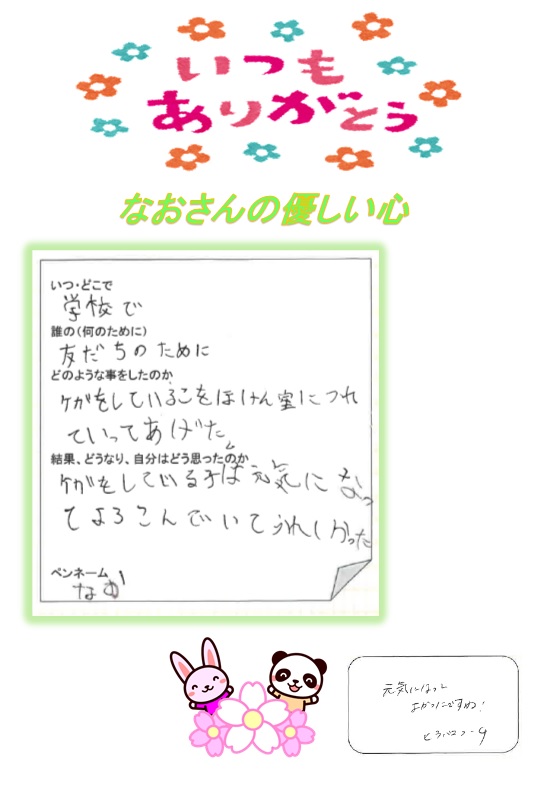 いつも
ありがとう
なおさんの優しい心
いつ・どこで
学校で
誰の(何のために)
友だちのために
どのような事をしたのか
ケがをしているこをほけん室につれ
ていってあげた。
結果、どうなり、自分はどう思ったのか
ケがをしている子は元気になっ
てよろこんでいてうれしかった
ペンネーム
なお
元気になって
よかったですね!